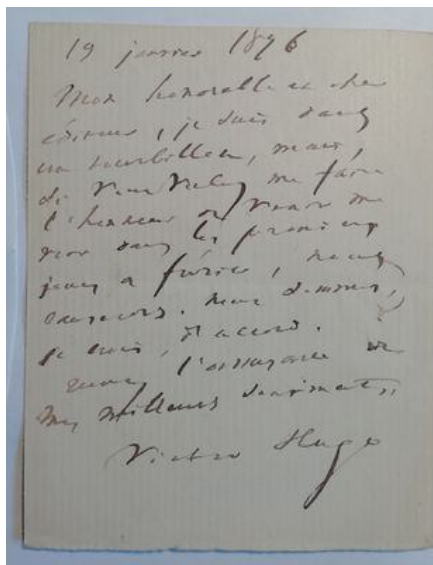 19 janvier 1876
Mon honorable et cher
éditeur, je suis dans
un tourbillon, mais,
si vous voulez me faire
l'honneur de venir me
voir dans les premiers
jours de février, nous
causerons. Nous sommes,
je crois, d'accord.
Recevez l'assurance de
mes meilleurs sentiments,
Victor Hugo